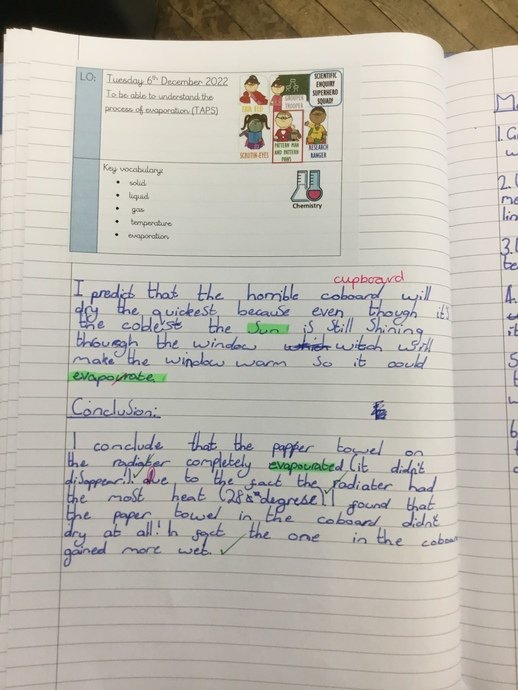 LO: Tuesday 6th December 2022
To be able to understand the
process of evaporation (TAPS)
SCIENTIFIC
ENQUIRY
SUPERHERO
SQUAD!
GROUPER
TROOPER
SCRUTIN-EYES
PATTERN MAN
AND PATTERN
PAWS
RESEARCH
RANGER
Key vocabulary:
• solid
• liquid
• gas
• temperature
• evaporation
Chemistry
cupboard
I predict that the horrible coboard will
dry the quickest because even though it's
the coblerst the Sun is still shining
through the window witch will
make the window warm so it could
evapourate.
Conclusion:
I conclude that the papper towel on
the radiater completely evapourated (it didn't
disappear) due to the fact the radiater had
the most heat (28 degrese) I found that
the paper towel in the coboard didn't
dry at all! In fact the one in the coboar
gained more wet.
1.
2.
3.
4.
5.